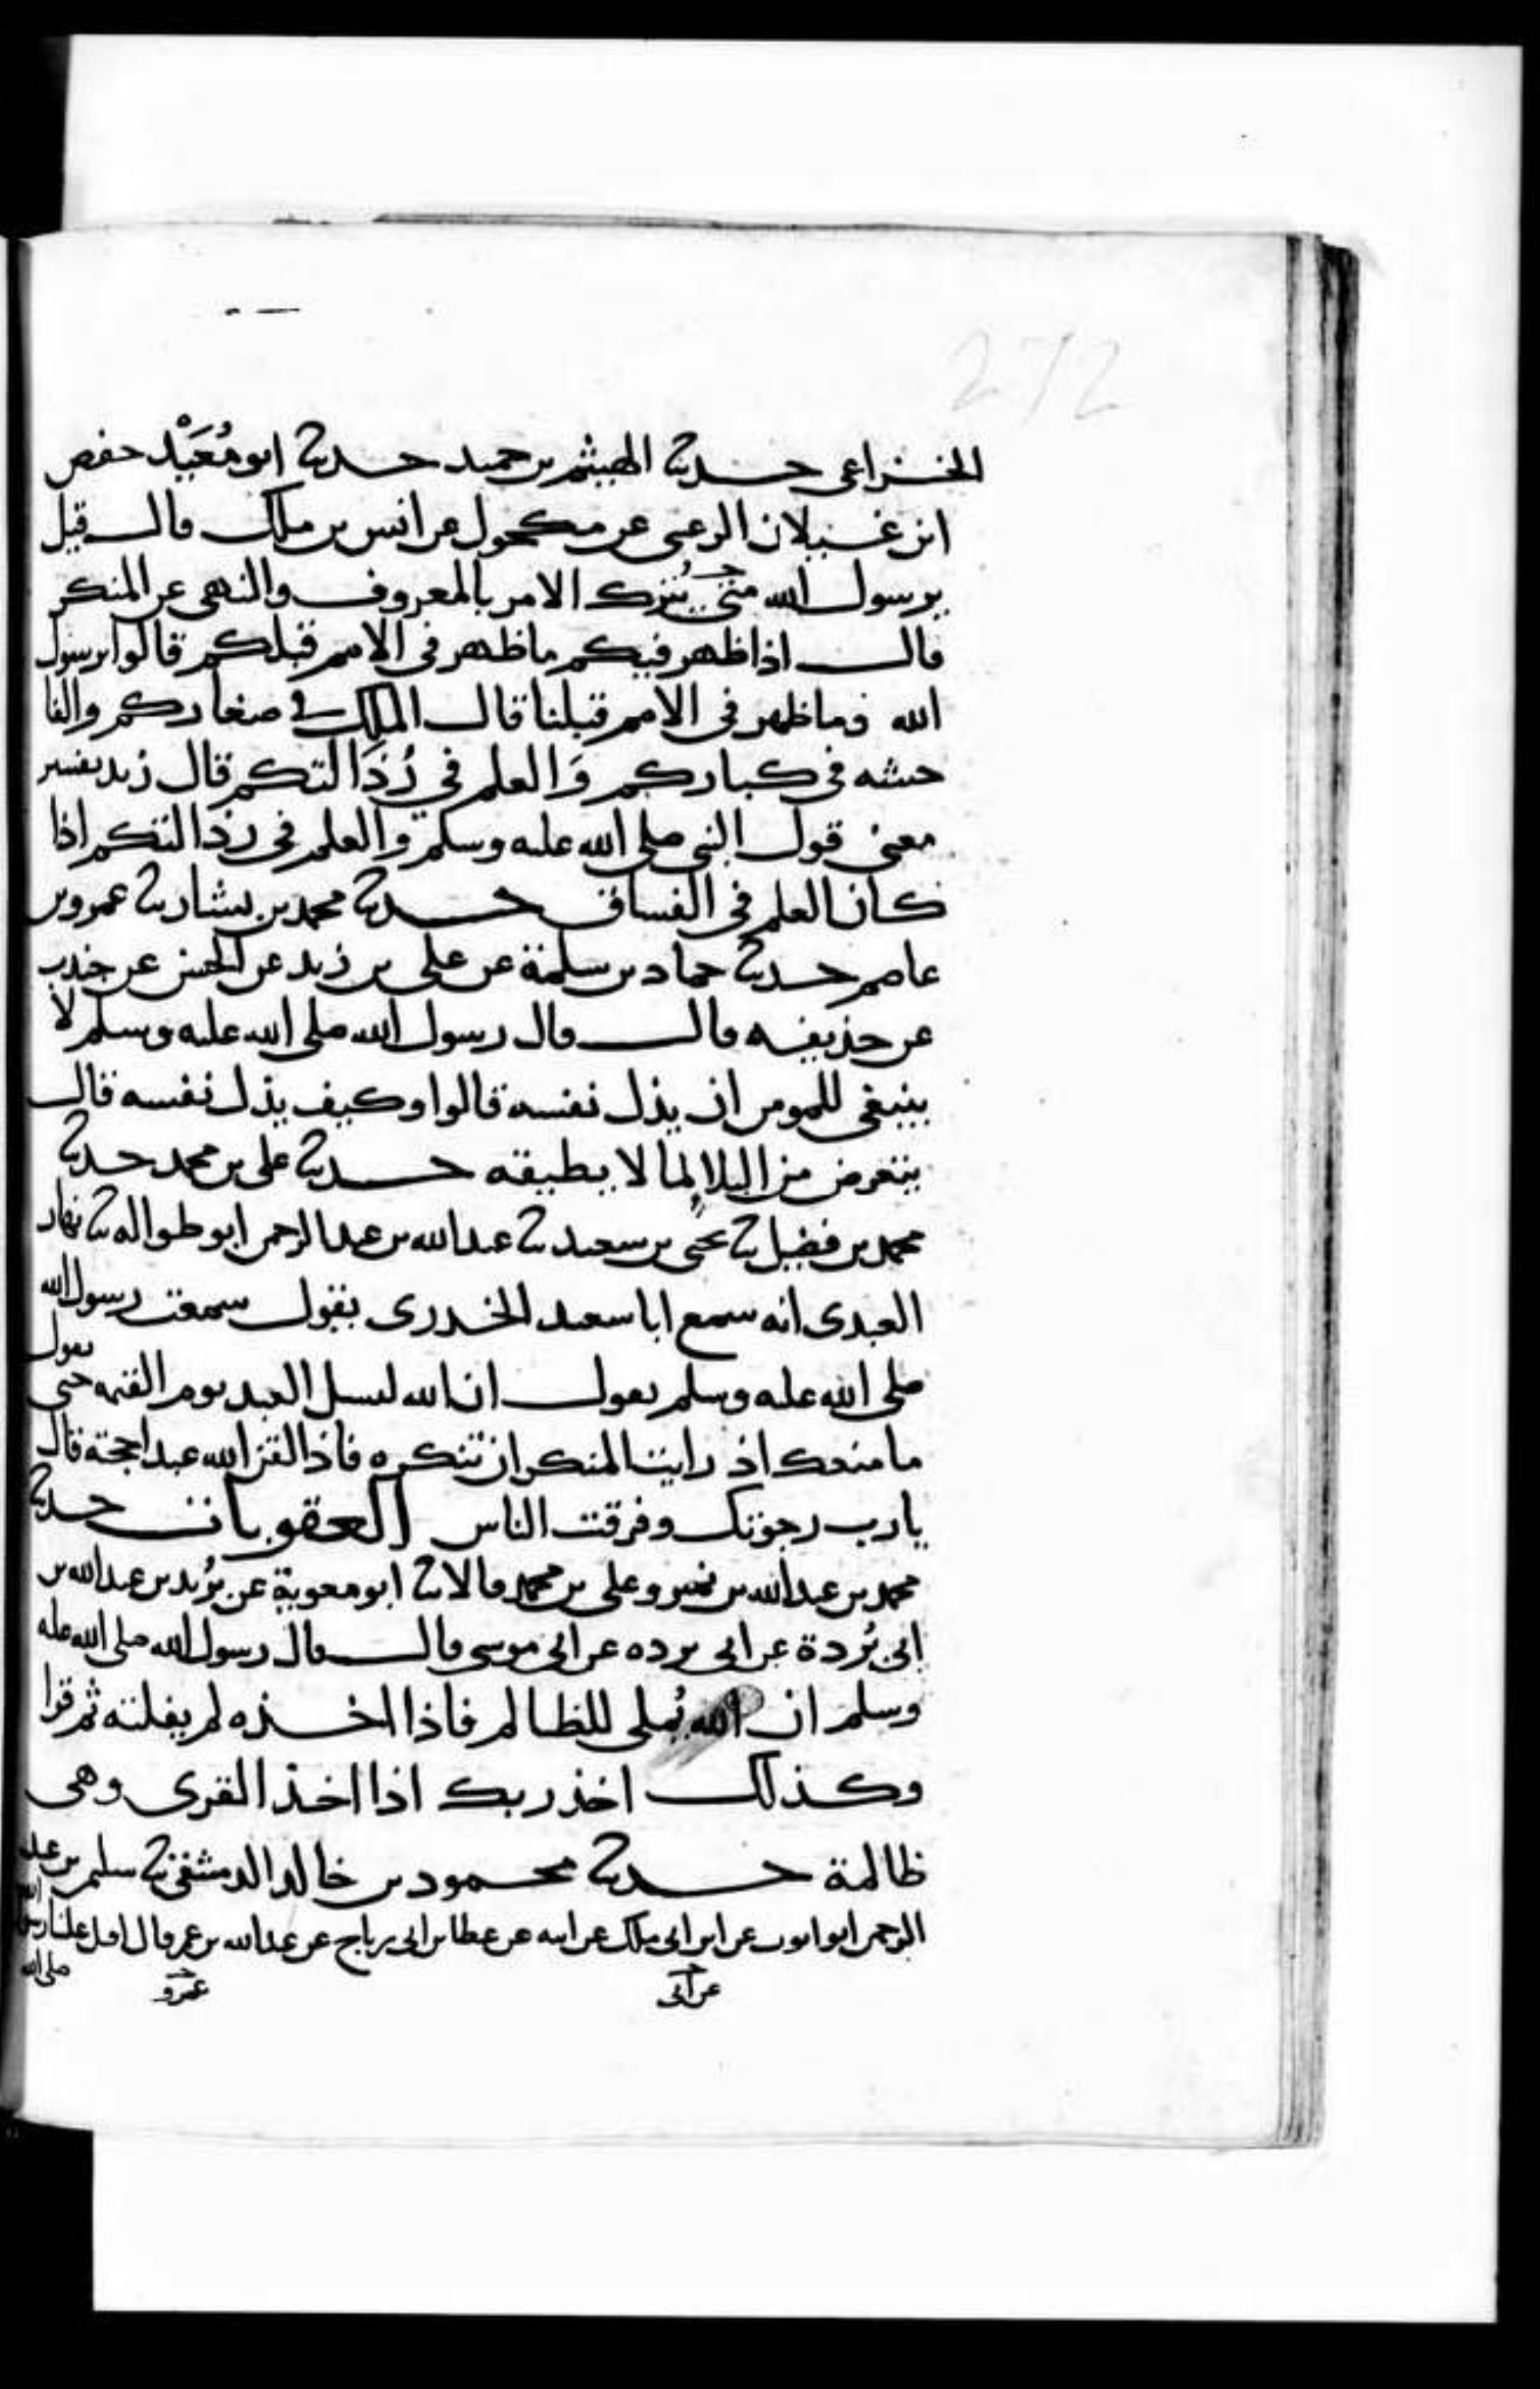 272
الخزاعى حدثنا الهيثم بن حميد حدثنا ابو مُعَيْد حفص
ابن غيلان الرعينى عن مكحول عن انس بن ملك قال قيل
يرسول الله متى نترك الامر بالمعروف والنهى عن المنكر
قال اذا ظهر فيكم ما ظهر فى الامم قبلكم قالوا يرسول
الله وما ظهر فى الامم قبلنا قال الملك فى صغاركم والفا
حشه فى كباركم وَالعلم في رُذَالتكم قال زيد تفسير
معنى قول النبى صلى الله عليه وسلم والعلم فى رذالتكم اذا
كان العلم فى الفساق حدثنا محمد بن بشار ثنا عمرو بن
عاصم حدثنا حماد بن سلمة عن على بن زيد عن الحسن عن جندب
عن حذيفه قال قال رسول الله صلى الله عليه وسلم لا
ينبغى للمومن ان يذل نفسه قالوا وكيف يذل نفسه قال
يتعرض من البلا لِما لا يطيقه حدثنا على بن محمد حدثنا
محمد بن فضيل ثنا يحيى بن سعيد ثنا عبد الله بن عبد الرحمن ابو طواله ثنا نهار
العبدى انه سمع ابا سعيد الخدرى يقول سمعت رسول الله
صلى الله عليه وسلم يقول ان الله ليسل العبد يوم القيمه حتى يقول
ما منعك اذ رايت المنكر ان تنكره فاذا لقن الله عبدا حجته قال
يا رب رجوتك وفرقت الناس العقوبات حدثنا
محمد بن عبد الله بن نمير وعلى بن محمد قالا ثنا ابو معوية عن بُريد بن عبد الله بن
ابى بُردة عن ابى برده عن ابى موسى قال قال رسول الله صلى الله عليه
وسلم ان الله يُملى للظالم فاذا اخذه لم يفلته ثم قرا
وكذلك اخذ ربك اذا اخذ القرى وهى
ظالمة حدثنا محمود بن خالد الدمشقى ثنا سليمن بن عبد
الرحمن ابو ايوب عن ابن ابى ملك عن ابيه عن عطا بن ابى رباح عن عبد الله بن عمر قال اقبل علينا رسول الله صلى الله
عن ابى عمرو